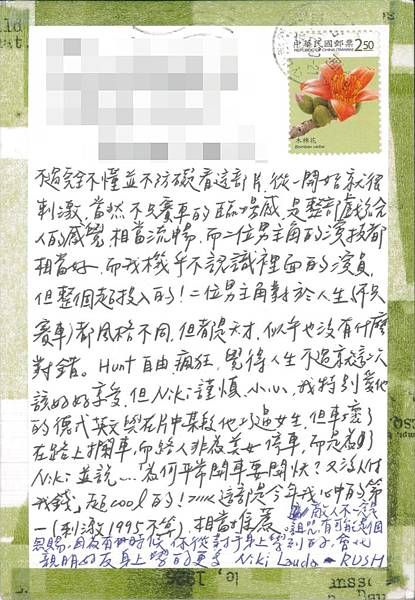 中華民國郵票 2.50
REPUBLIC OF CHINA (TAIWAN)
木棉花
Bombax ceiba
不過完全不懂並不防礙看這部片, 從一開始就很
刺激, 當然不只賽車的臨場感, 是整部戲給
人的感覺, 相當流暢, 而二位男主角的演技都
相當好, 而我機乎不認識裡面的演員,
但整個超投入的! 二位男主角對於人生(不只
賽車)都風格不同, 但都是天才, 似乎也沒有什麼
對錯。Hunt自由瘋狂, 覺得人生不過就這一次
該好好享受, 但Niki謹慎、小心, 我特別愛他
的德式英文, 在片中某段他巧遇女生, 但車壞了
在路上攔車, 而路人非為美女停車, 而是為了
Niki 並說… "為何平常開車要開快? 又沒人付
我錢", 超cool的! 這部是今年我心中的第
一(刺激1995不算), 相當推薦
敵人不一定是詛咒, 有可能是個
恩賜, 因為有些時候, 你從對手身上學到的, 會比
親朋好友身上學的更多 Niki Lauda - RUSH